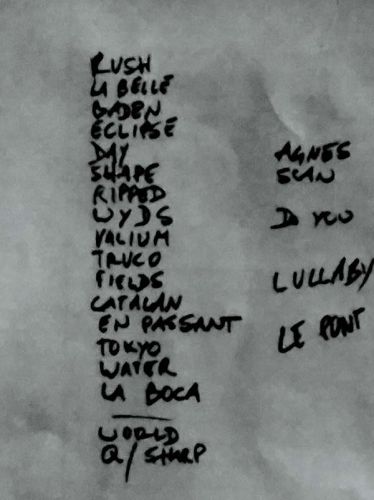 RUSH
LA BELLE
BADEN
ECLIPSE
DAY
SHAPE
RIPPED
WYDS
VALIUM
TRUCO
FIELDS
CATALAN
EN PASSANT
TOKYO
WATER
LA BOCA
WORLD
Q/SHARP
AGNES
SEAN
D YOU
LULLABY
LE PONT